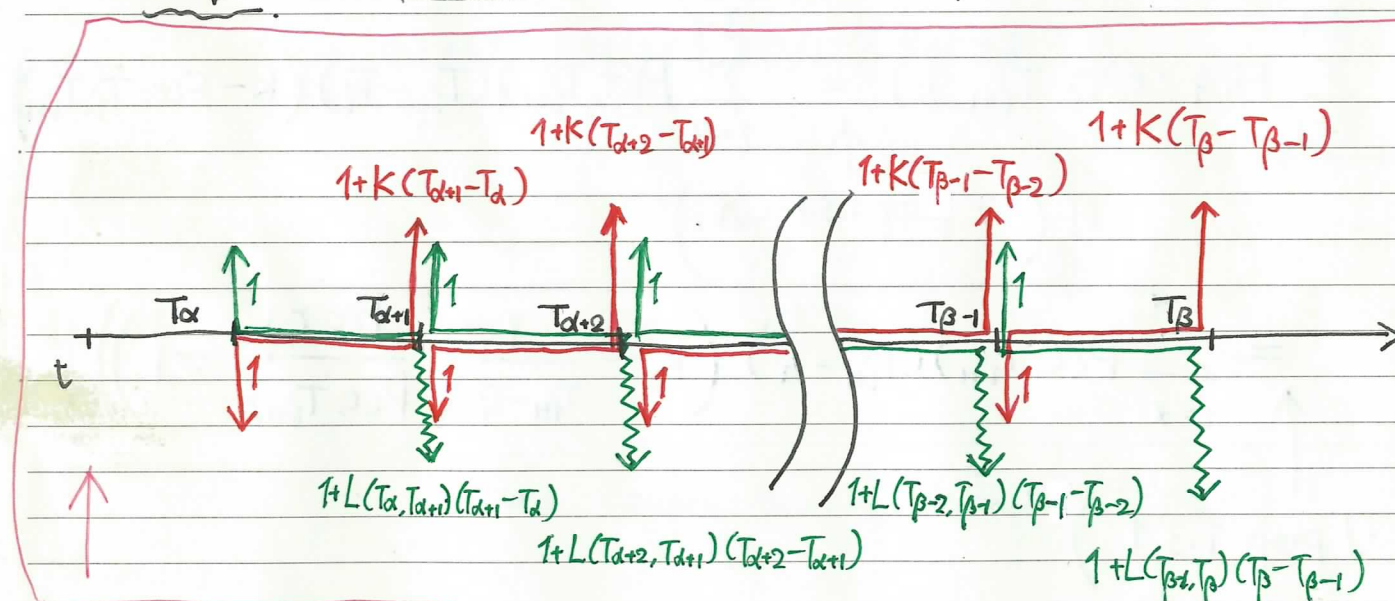 1+K(T_{α+2}-T_{α+1})
1+K(T_β-T_{β-1})
1+K(T_{α+1}-T_α)
1+K(T_{β-1}-T_{β-2})
1
1
1
1
T_α
T_{α+1}
T_{α+2}
T_{β-1}
T_β
t
1
1
1
1
1+L(T_α,T_{α+1})(T_{α+1}-T_α)
1+L(T_{β-2},T_{β-1})(T_{β-1}-T_{β-2})
1+L(T_{α+2},T_{α+1})(T_{α+2}-T_{α+1})
1+L(T_{β-1},T_β)(T_β-T_{β-1})